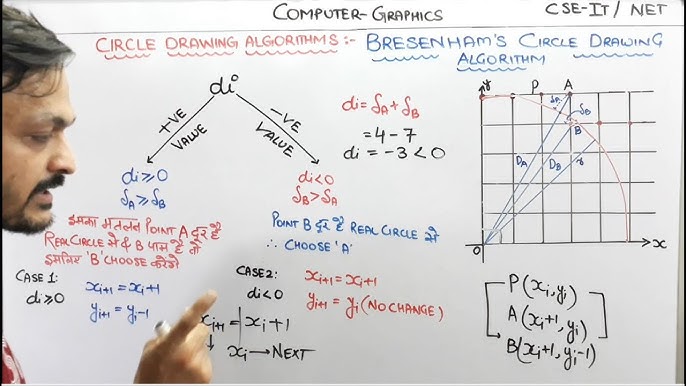 COMPUTER-GRAPHICS
CSE-IT/ NET
CIRCLE DRAWING ALGORITHMS:- BRESENHAM'S CIRCLE DRAWING
ALGORITHM
di
+VE
VALUE
-VE
VALUE
di = δA + δB
= 4 - 7
di = -3 < 0
di ≥ 0
δA ≥ δB
di < 0
δB > δA
इसका मतलब POINT A दूर है
REAL CIRCLE से & B पास है तो
इसलिए 'B' CHOOSE करेंगे
POINT B दूर है REAL CIRCLE से
∴ CHOOSE 'A'
CASE 1:
di ≥ 0
xi+1 = xi+1
yi+1 = yi-1
CASE 2:
di < 0
xi+1 = xi+1
yi+1 = yi (NO CHANGE)
xi+1 = xi+1
↓
xi → NEXT
y
P
A
δA
δB
B
DA
DB
r
O
x
P(xi, yi)
A(xi+1, yi)
B(xi+1, yi-1)